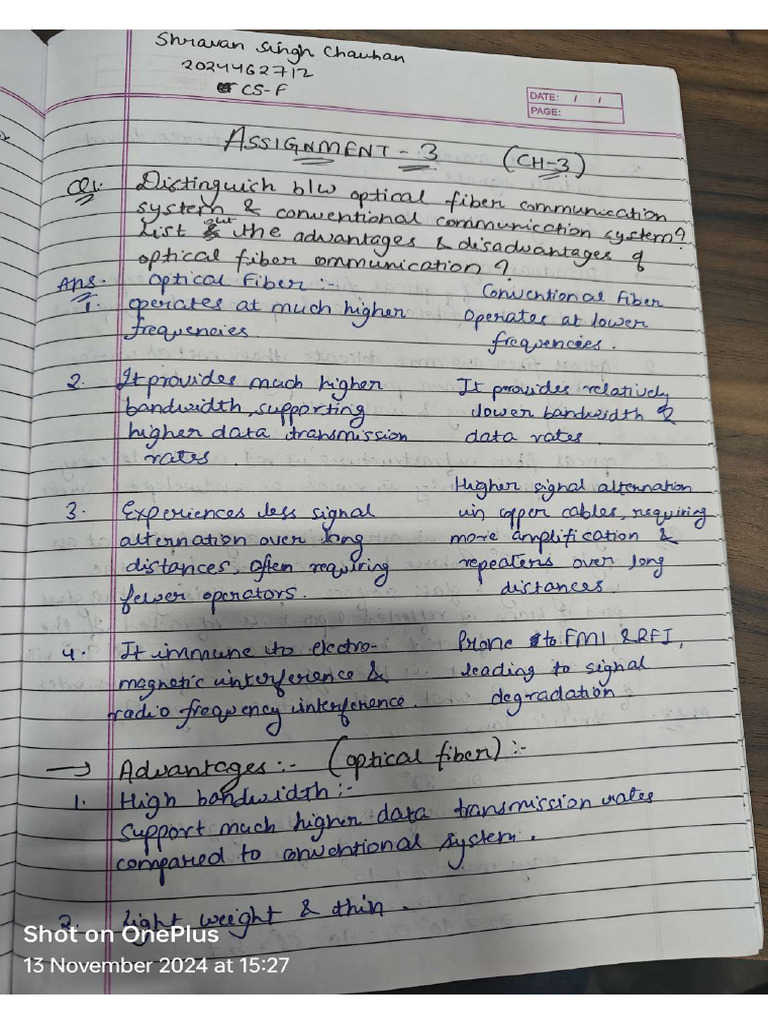 Shravan Singh Chauhan
2024462712
CS-F
DATE: / /
PAGE:
ASSIGNMENT - 3 (CH-3)
Q1. Distinguich b/w optical fiber communication
system & conventional communication system?
List out the advantages & disadvantages of
optical fiber ommunication?
Ans. Optical Fiber :- Conventional Fiber
1. operates at much higher Operates at lower
frequencies. frequencies.
2. It provides much higher It provides relatively
bandwidth, supporting lower bandwidth &
higher data transmission data rates.
rates.
Higher signal alternation
3. Experiences less signal in copper cables, requiring
alternation over long more amplification &
distances, often requiring repeaters over long
fewer operators. distances
4. It immune to electro- Prone to EMI & RFI,
magnetic interference & leading to signal
radio frequency interference. degradation
→ Advantages :- (optical fiber) :-
1. High bandwidth :-
support much higher data transmission rates
compared to conventional system.
2. Light weight & thin.
Shot on OnePlus
13 November 2024 at 15:27